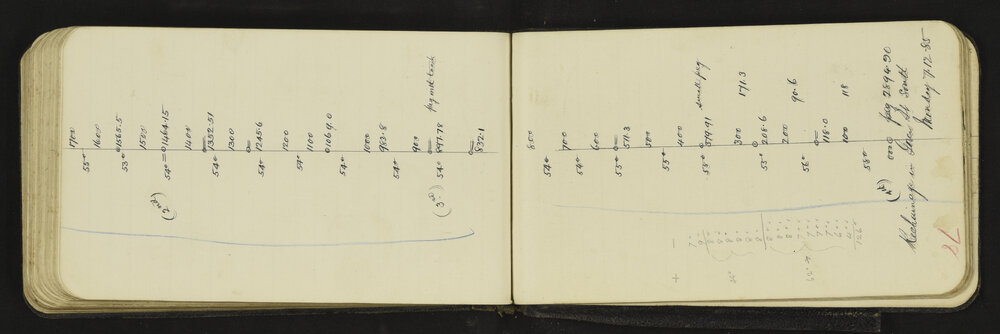 1700
55°
1600
53° 1565.5
1500
(2nd) 54° 1464.15
1400
54° 1332.51
1300
54° 1245.6
1200
54° 1100
1069.0
54°
1000
983.8
54°
900
(3rd) 54° 897.78
832.1
800
54°
700
54°
600
55° 511.3
500
55°
400
55° 379.91 small peg
300 171.3
55° 208.6
200 90.6
56°
118.0
100 118
58°
000 peg 2894.90
Rechainage in St South
Monday 7.12.85
78